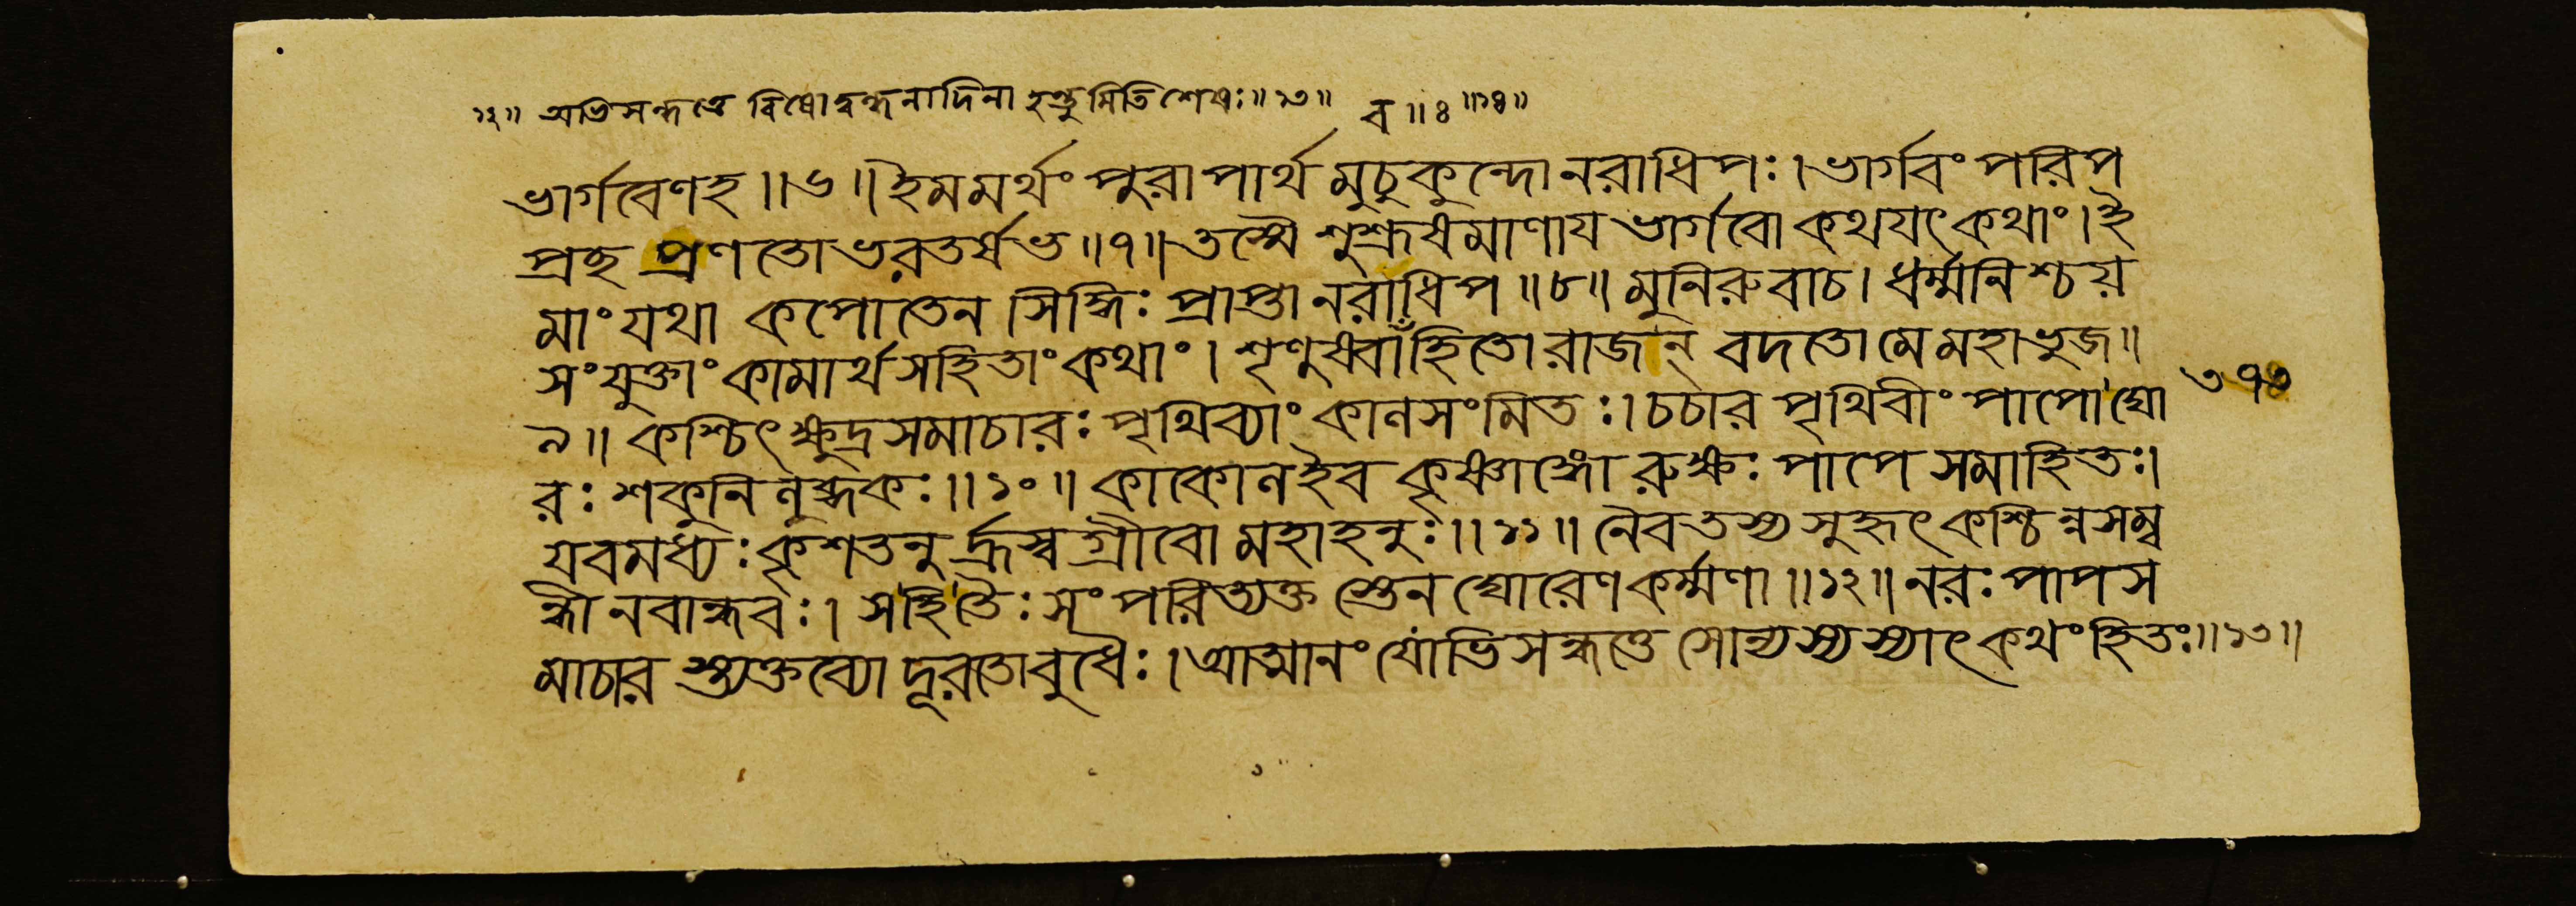 ১২॥ অভিসন্ধত্তে বিষোদ্বন্ধনাদিনা হন্তুমিতি শেষঃ॥ ১৩॥ ব॥ ৪ ॥১৪॥
ভার্গবেণহ॥ ৬॥ ইমমর্থং পুরা পার্থ মুচুকুন্দো নরাধিপঃ। ভার্গবং পরিপ
প্রচ্ছ প্রণতো ভরতর্ষভ॥ ৭॥ তস্মৈ শুশ্রূষমাণায ভার্গবো কথযৎ কথাং। ই
মাং যথা কপোতেন সিদ্ধিঃ প্রাপ্তা নরাধিপ॥ ৮॥ মুনিরুবাচ। ধর্ম্মনিশ্চয়
সংযুক্তাং কামার্থসহিতাং কথাং। শৃণুষ্বাঁহিতো রাজন্ বদতো মে মহাভুজ॥
৯॥ কশ্চিৎ ক্ষুদ্রসমাচারঃ পৃথিব্যাং কালসংমিতঃ। চচার পৃথিবীং পাপো ঘো
৩৭৩
রঃ শকুনিলুব্ধকঃ॥ ১০॥ কাকোলইব কৃষ্ণাঙ্গো রুক্ষঃ পাপে সমাহিতঃ।
যবমধ্যঃ কৃশতনু র্হ্রস্বগ্রীবো মহাহনুঃ॥ ১১॥ নৈব তস্য সুহৃৎ কশ্চিন্ন সম্ব
ন্ধী ন বান্ধবঃ। স হি তৈঃ সং পরিত্যক্ত স্তেন ঘোরেণ কর্ম্মণা॥ ১২॥ নরঃ পাপস
মাচার স্ত্যক্তব্যো দূরতো বুধৈঃ। আত্মানং যোভিসন্ধত্তে সোন্যস্য স্যাৎ কথং হিতঃ॥ ১৩॥